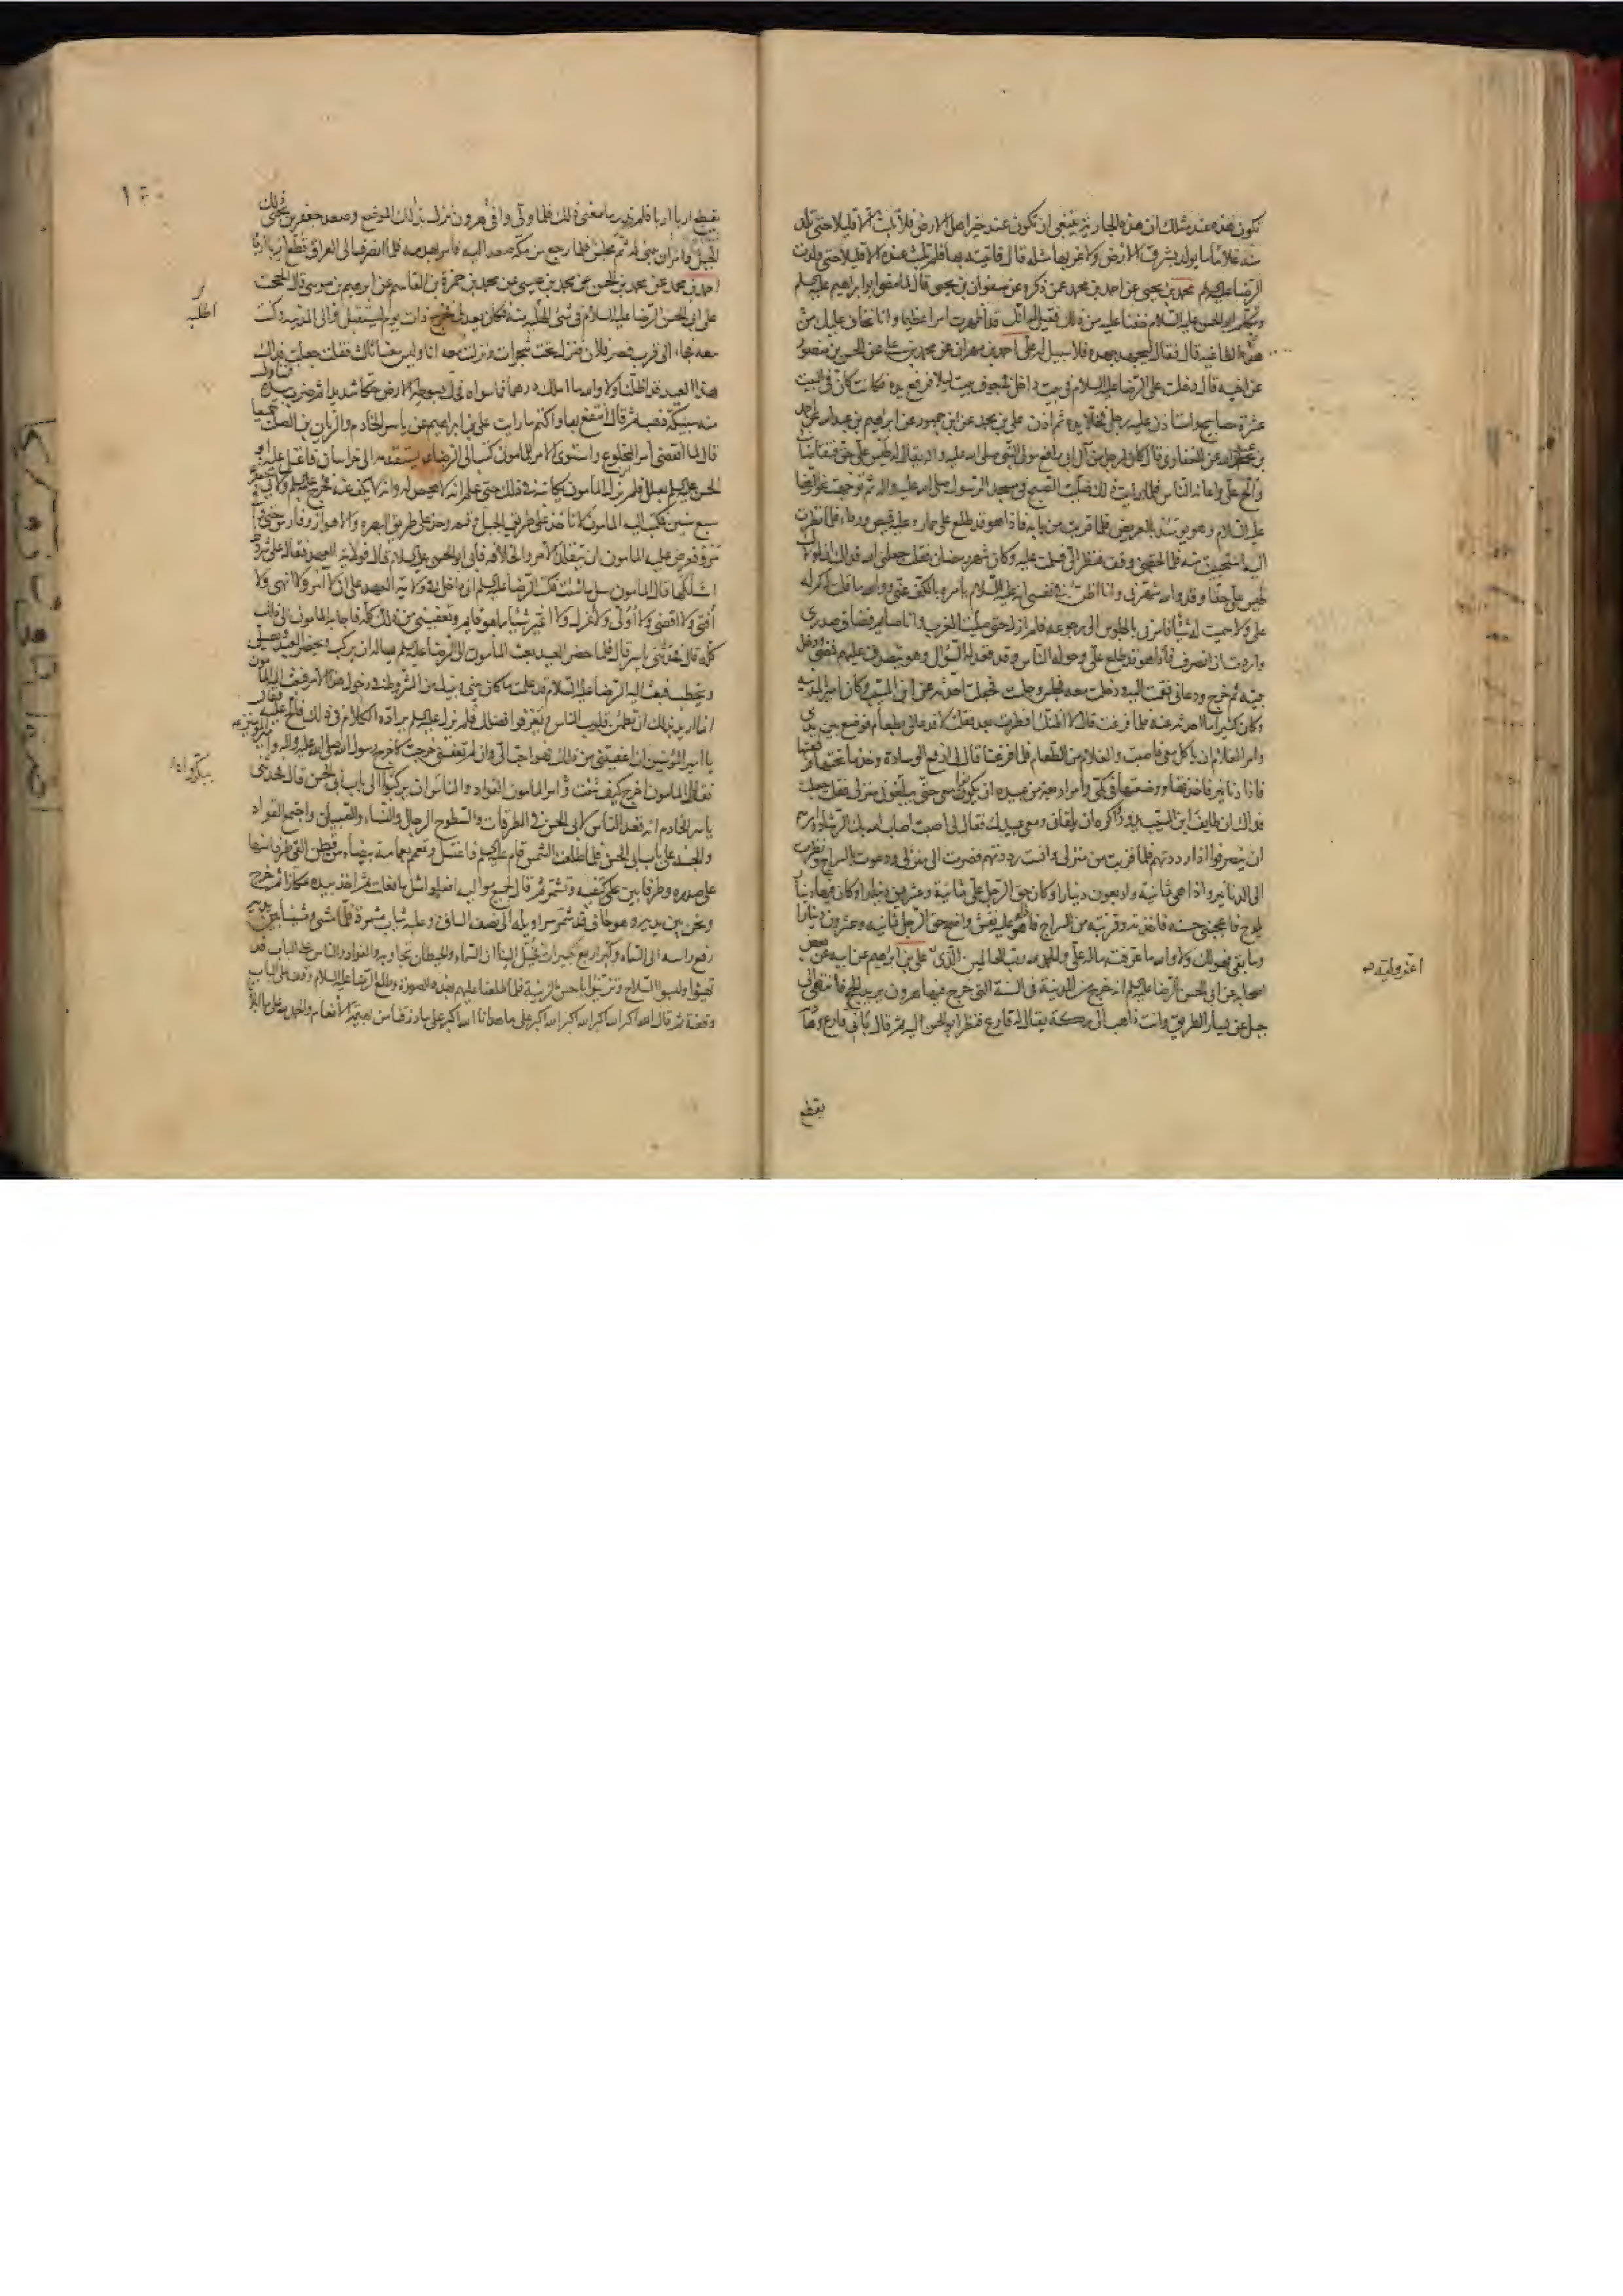 تكون هذه عند مثلك ان هذه الجارية ينبغي ان تكون عند خير اهل الارض فلا تلبث الا قليلا حتى تلد
منه غلاما ما يولد بشرق الارض ولا غربها مثله قال فاتيته بها فلم تلبث عنده الا قليلا حتى ولدت
الرضا عليه السلم محمد بن يحيى عن احمد بن محمد عمن ذكره عن صفوان بن يحيى قال لما مضى ابو ابراهيم عليه السلم
وتكلم ابو الحسن عليه السلام خفنا عليه من ذلك فقيل له انك قد اظهرت امرا عظيما وانا نخاف عليك من
هذا الطاغية قال فقال ليجهد جهده فلا سبيل له علي احمد بن مهران عن محمد بن علي عن الحسن بن منصور
عن اخيه قال دخلت على الرضا عليه السلام في بيت داخل في جوف بيت ليلا فرفع يده فكانت كان في البيت
عشرة مصابيح واستاذن عليه رجل فخلا يده ثم اذن له علي بن محمد عن ابن جمهور عن ابراهيم بن عبد الله عن احمد
بن عبد الله عن الغفاري قال كان لرجل من آل ابي رافع مولى النبي صلى الله عليه واله يقال له طيس علي حق فتقاضاني
والح علي واعانه الناس فلما رايت ذلك صليت الصبح في مسجد الرسول صلى الله عليه واله ثم توجهت نحو الرضا
عليه السلام وهو يومئذ بالعريض فلما قربت من بابه فاذا هو قد طلع على حمار وعليه قميص ورداء فلما نظرت
اليه استحييت منه فلما لحقني وقف فنظر الي فسلمت عليه وكان شهر رمضان فقلت جعلني الله فداك ان لمولاك
طيس علي حقا وقد والله شهرني وانا اظن في نفسي انه عليه السلام يامره بالكف عني ووالله ما قلت له كم له
علي ولا سميت له شيئا فامرني بالجلوس الى رجوعه فلم ازل حتى صليت المغرب وانا صايم فضاق صدري
واردت ان انصرف فاذا هو قد طلع علي وحوله الناس وقد قعد له السؤال وهو يتصدق عليهم فمضى ودخل
بيته ثم خرج ودعاني فقمت اليه ودخلت معه فجلس وجلست فجعلت احدثه عن ابن المسيب وكان امير المدينة
وكان كثيرا ما احدثه عنه فلما فرغت قال لا اظنك افطرت بعد فقلت لا فدعا لي بطعام فوضع بين يدي
وامر الغلام ان ياكل معي فاصبت والغلام من الطعام فلما فرغنا قال لي ارفع الوسادة وخذ ما تحتها فرفعتها
فاذا دنانير فاخذتها ووضعتها في كمي وامر اربعة من عبيده ان يكونوا معي حتى يبلغوني منزلي فقلت جعلت
فداك ان طايف ابن المسيب يدور واكره ان يلقاني ومعي عبيدك فقال لي اصبت اصاب الله بك الرشاد وامرهم
ان ينصرفوا اذا رددتهم فلما قربت من منزلي وانست رددتهم فصرت الى منزلي ودعوت بالسراج ونظرت
الى الدنانير واذا هي ثمانية واربعون دينارا وكان حق الرجل علي ثمانية وعشرين دينارا وكان فيها دينار
يلوح فاعجبني حسنه فاخذته وقربته من السراج فاذا عليه نقش واضح حق الرجل ثمانية وعشرون دينارا
وما بقي فهو لك ولا والله ما عرفت ما له علي والحمد لله رب العالمين الذي علي بن ابراهيم عن ابيه عن بعض
اصحابه عن ابي الحسن الرضا عليه السلم انه خرج من المدينة في السنة التي خرج فيها هرون يريد الحج فانتهى الى
جبل عن يسار الطريق وانت ذاهب الى مكة يقال له فارع فنظر ابو الحسن اليه ثم قال باني فارع وهادمه
يقطع
يقطع اربا اربا فلم ندر ما معنى ذلك فلما ولى وافى هرون ونزل بذلك الموضع وصعد جعفر بن يحيى ذلك
الجبل وامر ان يبنى له ثم مجلس فلما رجع من مكة صعد اليه فامر بهدمه فلما انصرف الى العراق قطع اربا اربا
احمد بن محمد عن محمد بن الحسن عن محمد بن عيسى عن محمد بن حمزة بن القاسم عن ابراهيم بن موسى قال الححت
على ابي الحسن الرضا عليه السلام في شئ اطلبه منه فكان يعدني فخرج ذات يوم ليستقبل والي المدينة وكنت
معه فجاء الى قرب قصر فلان فنزل تحت شجرات ونزلت معه انا وليس معنا ثالث فقلت جعلت فداك
هذا العيد قد اظلنا ولا والله ما املك درهما فما سواه فحك بسوطه الارض حكا شديدا ثم ضرب بيده فتناول
منه سبيكة ذهب ثم قال انتفع بها واكتم ما رايت علي بن ابراهيم عن ياسر الخادم والريان بن الصلت جميعا
قال لما انقضى امر المخلوع واستوى الامر للمامون كتب الى الرضا يستقدمه الى خراسان فاعتل عليه ابو
الحسن عليه السلم بعلل فلم يزل المامون يكاتبه في ذلك حتى علم انه لا محيص له وانه لا يكف عنه فخرج عليه السلم ولابي جعفر
سبع سنين فكتب اليه المامون لا تاخذ على طريق الجبل وقم وخذ على طريق البصرة والاهواز وفارس حتى وافى
مرو فعرض عليه المامون ان يتقلد الامر والخلافة فابى ابو الحسن عليه السلام قال فولاية العهد فقال على شروط
اسئلكها قال المامون سل ما شئت فكتب الرضا عليه السلم اني داخل في ولاية العهد على ان لا آمر ولا انهى ولا
افتي ولا اقضي ولا اولي ولا اعزل ولا اغير شيئا مما هو قايم وتعفيني من ذلك كله فاجابه المامون الى ذلك
كله قال فحدثني ياسر قال فلما حضر العيد بعث المامون الى الرضا عليه السلم يساله ان يركب ويحضر العيد ويصلي
ويخطب فبعث اليه الرضا عليه السلام قد علمت ما كان بيني وبينك من الشروط في دخول هذا الامر فبعث اليه المامون
انما اريد بذلك ان تطمئن قلوب الناس ويعرفوا فضلك فلم يزل عليه السلم يراده الكلام في ذلك فالح عليه فقال
يا امير المؤمنين ان اعفيتني من ذلك فهو احب الي وان لم تعفني خرجت كما خرج رسول الله صلى الله عليه واله وامير المؤمنين عه
فقال المامون اخرج كيف شئت وامر المامون القواد والناس ان يركبوا الى باب ابي الحسن قال فحدثني
ياسر الخادم انه قعد الناس لابي الحسن في الطرقات والسطوح الرجال والنساء والصبيان واجتمع القواد
والجند على باب ابي الحسن فلما طلعت الشمس قام عليه السلم فاغتسل وتعمم بعمامة بيضاء من قطن القى طرفا منها
على صدره وطرفا بين كتفيه وتشمر ثم قال لجميع مواليه افعلوا مثل ما فعلت ثم اخذ بيده عكازا ثم خرج
ونحن بين يديه وهو حاف قد شمر سراويله الى نصف الساق وعليه ثياب مشمرة فلما مشى ومشينا بين يديه
رفع راسه الى السماء وكبر اربع تكبيرات فخيل الينا ان السماء والحيطان تجاوبه والقواد والناس على الباب قد
تهيئوا ولبسوا السلاح وتزينوا باحسن الزينة فلما طلعنا عليهم بهذه الصورة وطلع الرضا عليه السلام وقف على الباب
وقفة ثم قال الله اكبر الله اكبر الله اكبر الله اكبر على ما هدانا الله اكبر على ما رزقنا من بهيمة الانعام والحمد لله على ما ابلانا
اطلبه